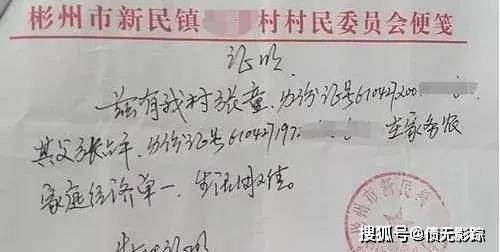 彬州市新民镇 村村民委员会便笺
证明
兹有我村张童,身份证号610427200
其父张占平,身份证号610427197 在家务农
家庭经济单一,生活困难。
特此证明
彬州市新民镇
搜狐号@债无影踪